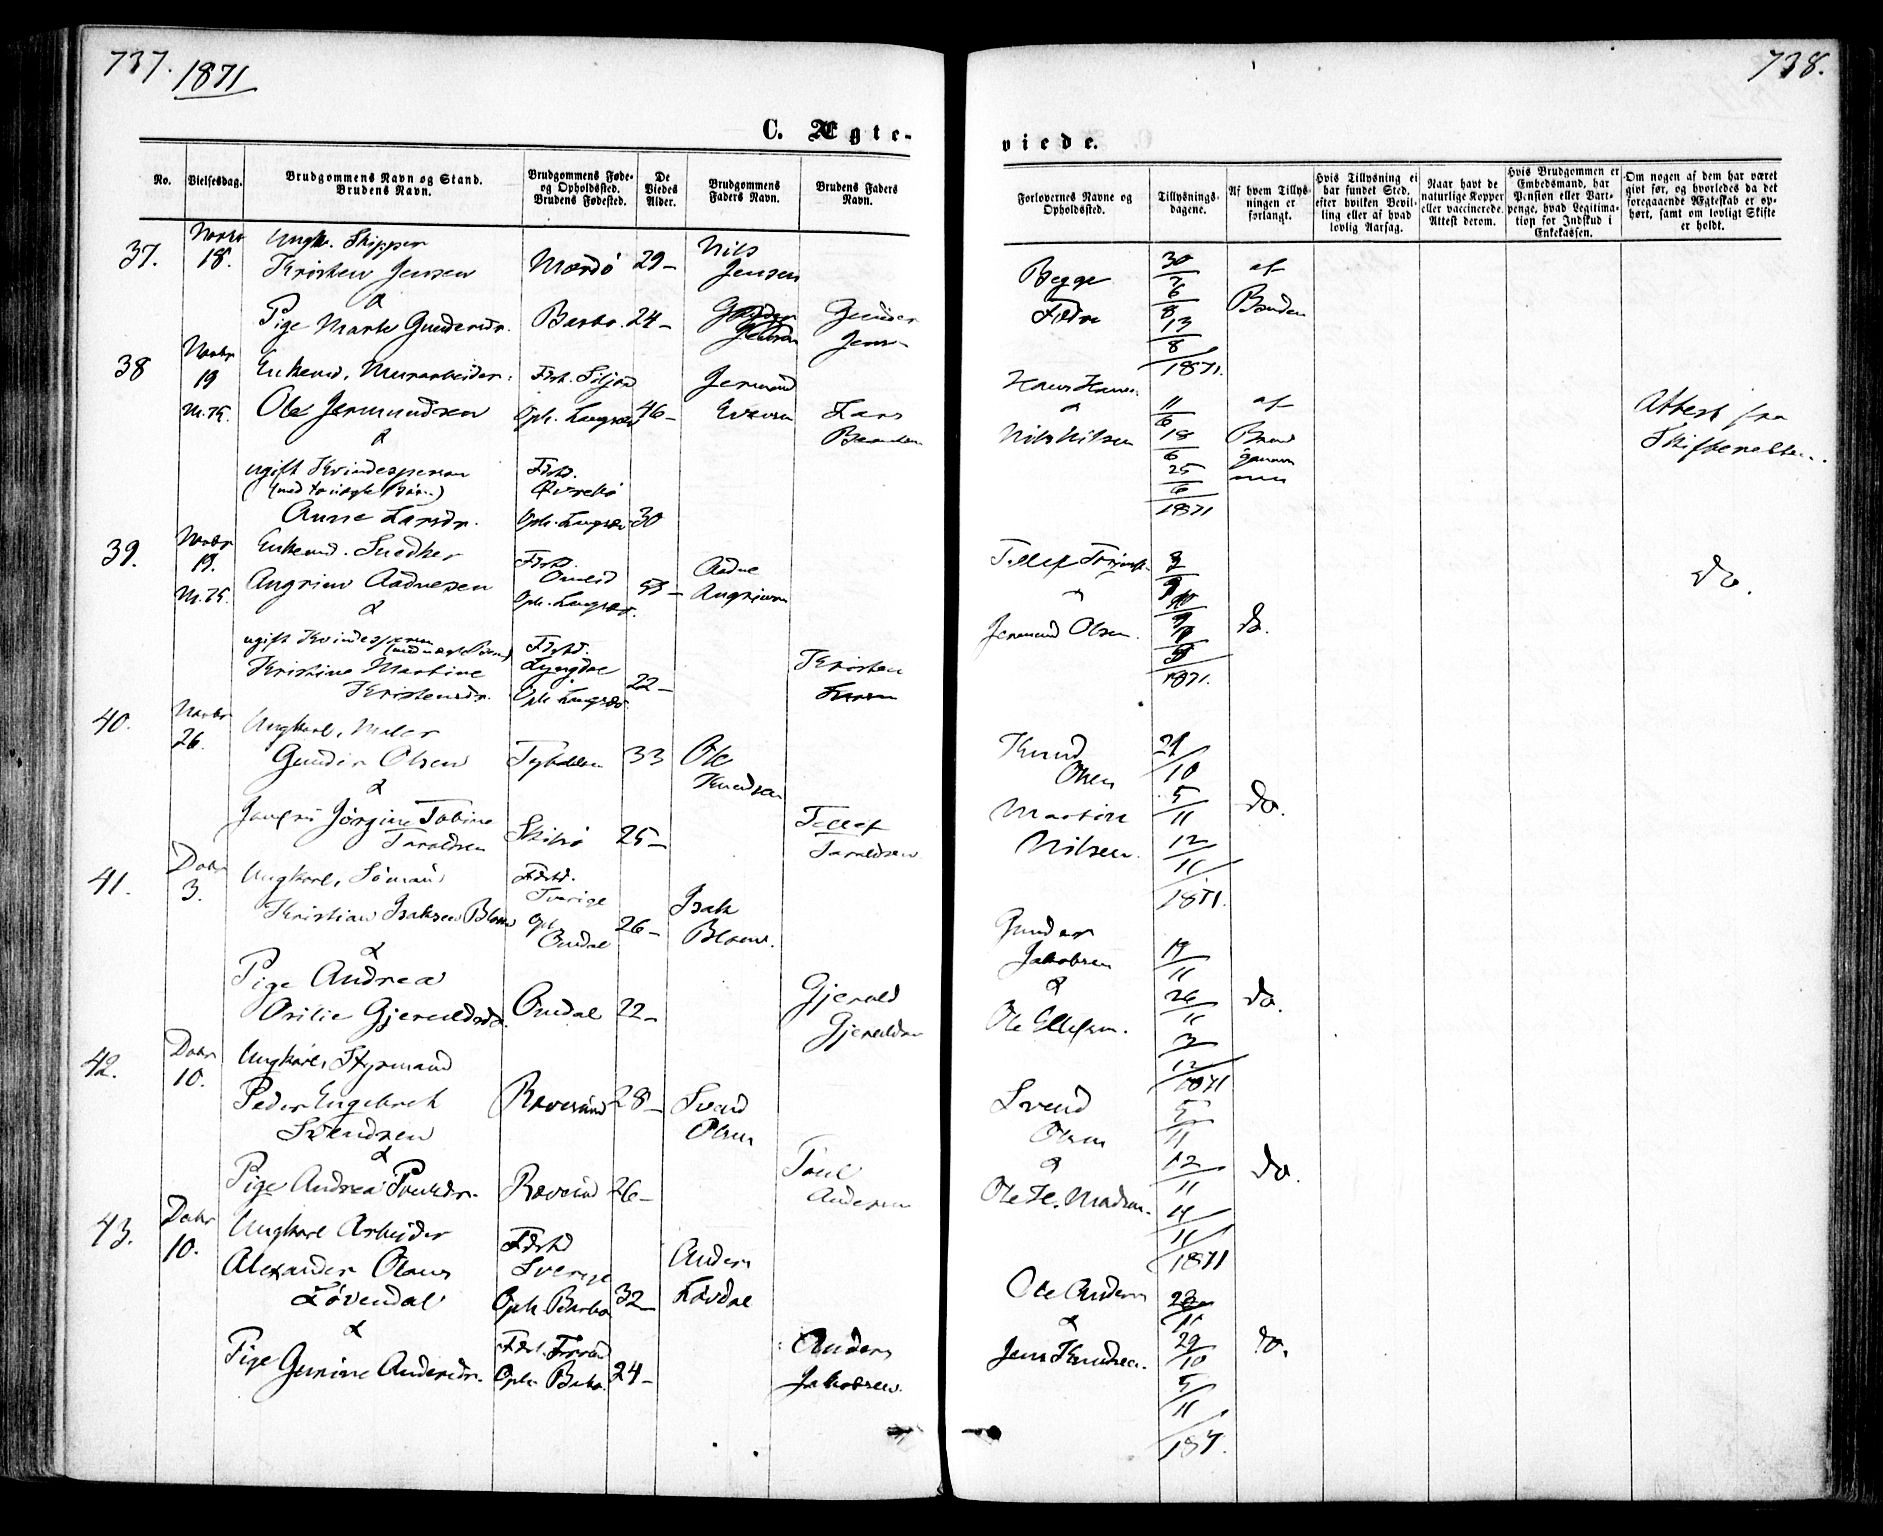 737.
1871
738.
C. Ægte-
viede.
No.
Vielsesdag.
Brudgommens Navn og Stand.
Brudens Navn.
Brudgommens Føde-
og Opholdssted.
Brudens Fødested.
De
Viedes
Alder.
Brudgommens
Faders Navn.
Brudens Faders
Navn.
Forlovernes Navne og
Opholdssted.
Tillysnings-
dagene.
Af hvem Tillys-
ningen er
forlangt.
Hvis Tillysning ei
har fundet Sted,
efter hvilken Bevil-
ling eller af hvad
lovlig Aarsag.
Naar havt de
naturlige Kopper
eller vaccinerede.
Attest derom.
Hvis Brudgommen er
Embedsmand, har
Pension eller Vart-
penge, hvad Legitima-
tion for Indskud i
Enkekassen.
Om nogen af dem har været
gift før, og hvorledes da det
foregaaende Ægteskab er op-
hørt, samt om lovligt Skifte
er holdt.
37.
Novbr
18.
Ungk. Skipper
Kristen Jensen
&
Pige Marte Gundersdr.
Mærdö
29-
Barbo.
24-
Nils
Jensen
Gunder
Jens-
Begge
Fædre
30
7
6
8
13
8
1871.
af
Bruden
38
Novbr
19
M.Th.
Enkemd. Murarbeider.
Ole Jermundsen
&
ugift Kvindesperson
Anne Larsdr.
Fdst. Siljord
Oph. Langsæ
46-
Fdstd.
Oph. Langsæ
30
Jermund
Evensen
Lars
Hans Hansen
&
Nils Nilsen
11
6
18
6
25
6
1871
af
Brud
gommen
Attest fra
Skifteretten.
39.
Novbr
19.
M.Th.
Enkemd. Snedker
Angrim Aadnesen
&
ugift Kvindesperson
Kristine Martine
Kristensdr.
Fdstd.
Oph. Langsæ.
Fdstd.
Lyngdal
Oph Langsæ.
22-
Aadne
Angrimsen
Kristen
Tellef
&
Jermund Olsen.
3
9
10
9
1871.
do.
do.
40.
Novbr
26.
Ungkarl, Maler
Gunder Olsen
&
Jomfru Jörgine Tobine
Taraldsen
33
25-
Ole
Knudsen
Tellef
Taraldsen
Knud
Olsen
Martin
Nilsen.
29
10
5
11
12
11
1871.
do.
41.
Decbr
3.
Ungkarl, Sömand
Kristian Isaksen Blom
&
Pige Andrea
Otilie Gjeruldsdr.
Fdstd.
Sverige
Oph.
Omdal
26-
Omdal
22-
Isak
Blom.
Gjeruld
Gjeruldsen
Gunder
Jakobsen
&
Ole Ellefsen.
19
11
26
11
3
12
1871
do.
42.
Decbr
10.
Ungkarl, Styrmand
Peder Engebret
Svendsen
&
Pige Andrea Poulsdr.
Revesand
28-
Revesand
26-
Svend
Olsen
Poul
Andersen
Svend
Olsen
&
Ole H. Madsen.
5
11
12
11
19
11
1871
do.
43.
Decbr
10.
Ungkarl Arbeider
Alexander Olaus
Lövendal
&
Pige Gunine Andersdr.
Fdstd
Sverige
Oph Barbo
32-
Oph. Barbo.
24-
Anders
Lövdal
Anders
Jakobsen.
Ole Anders
&
Jens Knudsen.
29
10
5
11
do.